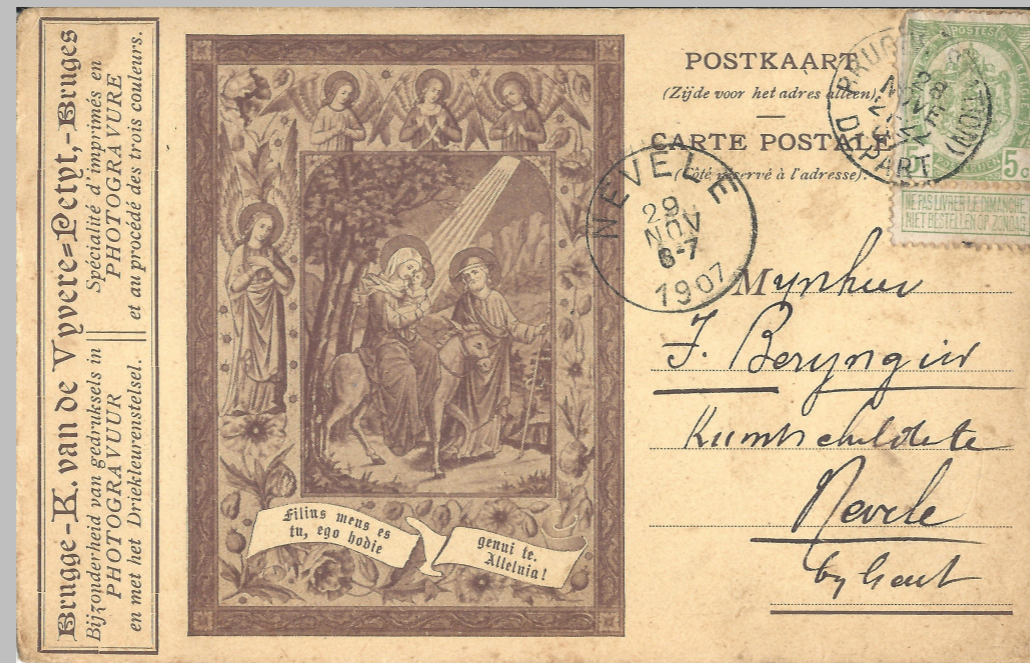 Brugge-K. van de Vyvere=Petyt,-Bruges
Bijzonderheid van gedruksels in
PHOTOGRAVUUR
en met het Driekleurenstelsel.
Spécialité d'imprimés en
PHOTOGRAVURE
et au procédé des trois couleurs.
Filius meus es
tu, ego hodie
genui te.
Alleluia!
POSTKAART
(Zijde voor het adres alleen).
CARTE POSTALE
(Côté réservé à l'adresse).
DÉPART
POSTES
5
5c
NE PAS LIVRER LE DIMANCHE
NIET BESTELLEN OP ZONDAG
NEVELE
29
NOV
6-7
1907
Mynheer
J.
Nevele
by Gent